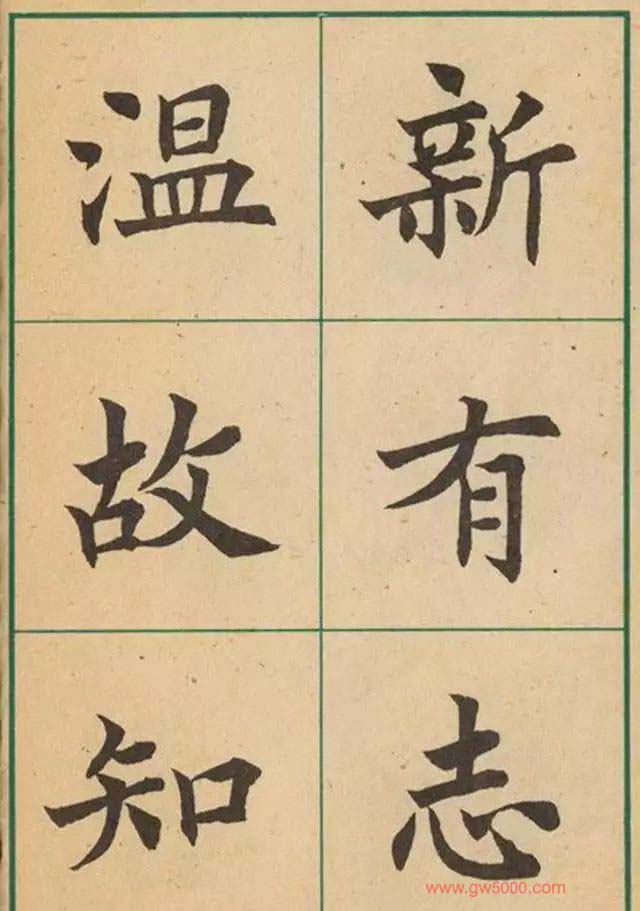 温故知
新有志
www.gw5000.com